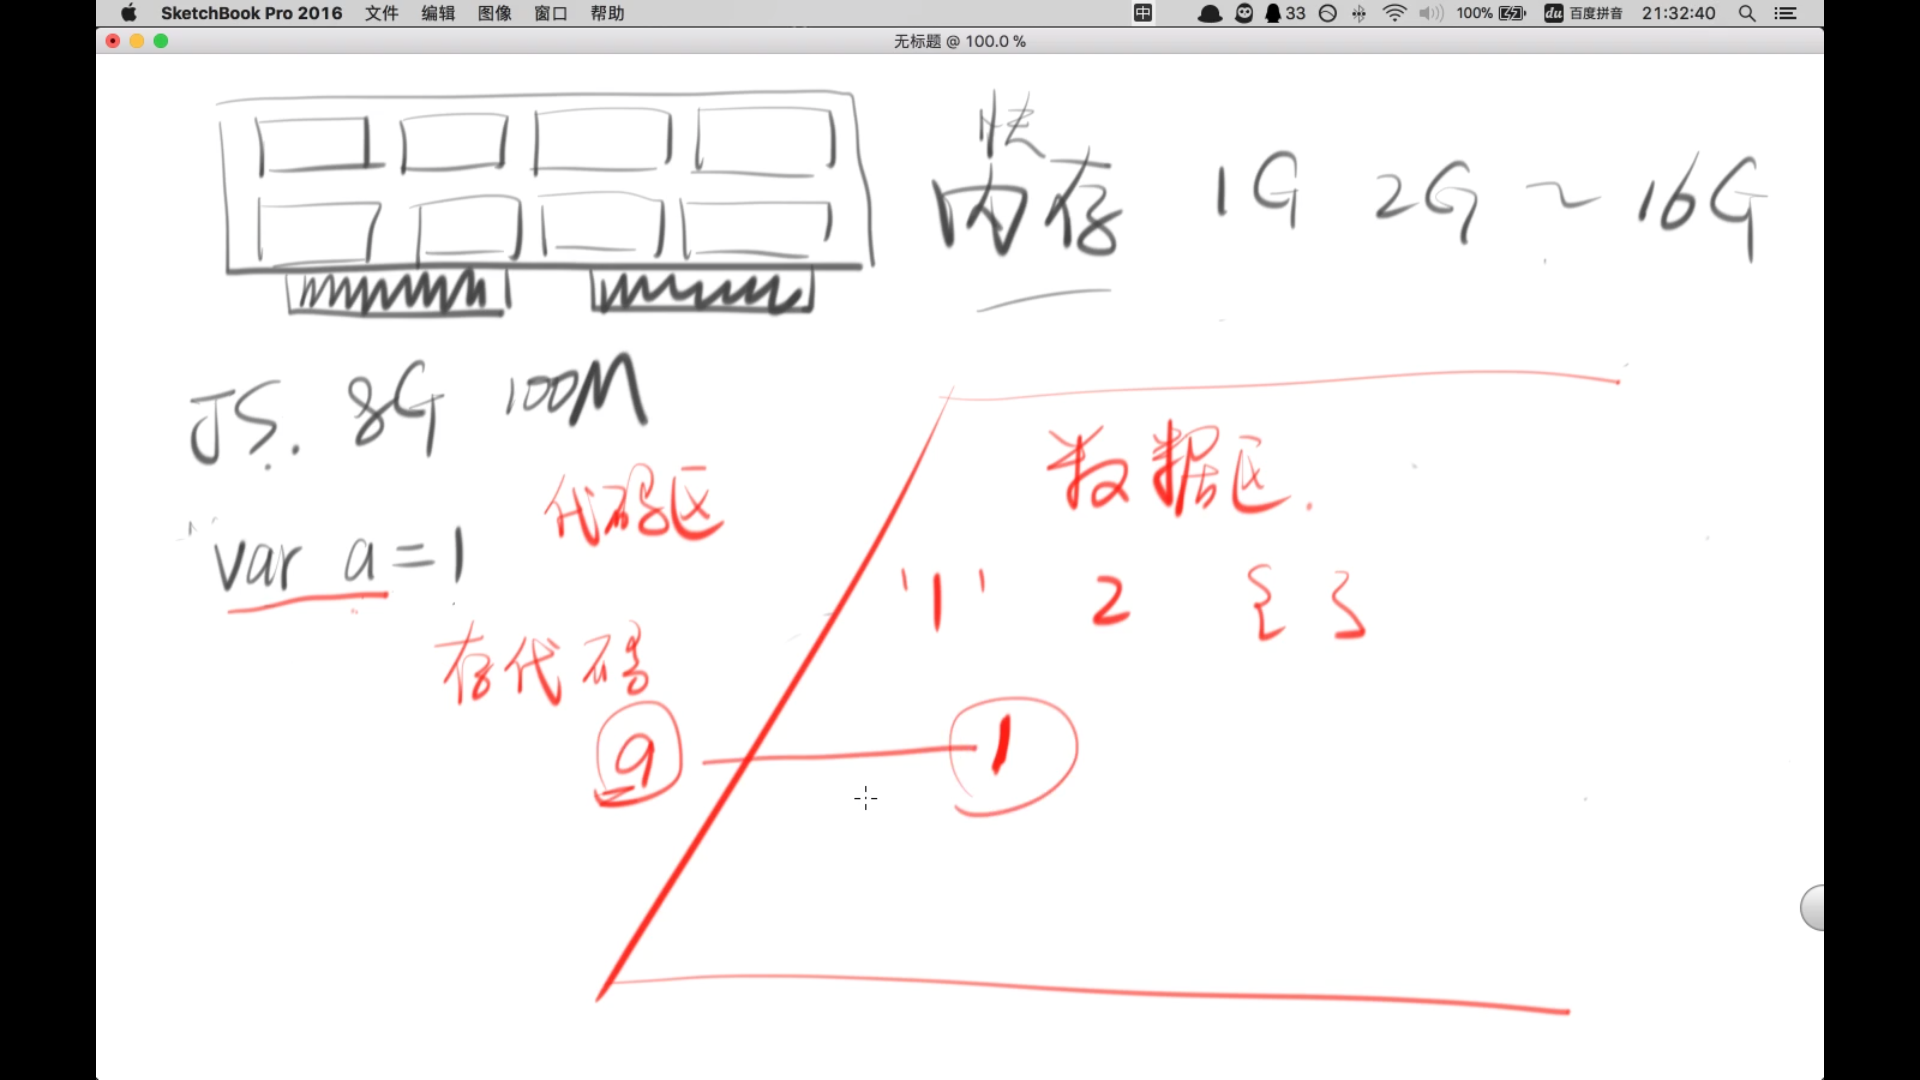 SketchBook Pro 2016 文件 编辑 图像 窗口 帮助 中 33 100% du 百度拼音 21:32:40
无标题 @ 100.0 %
快
内存 1G 2G ~ 16G
JS. 8G 100M
代码区 数据区.
var a = 1
'1' 2 { }
存代码
a 1